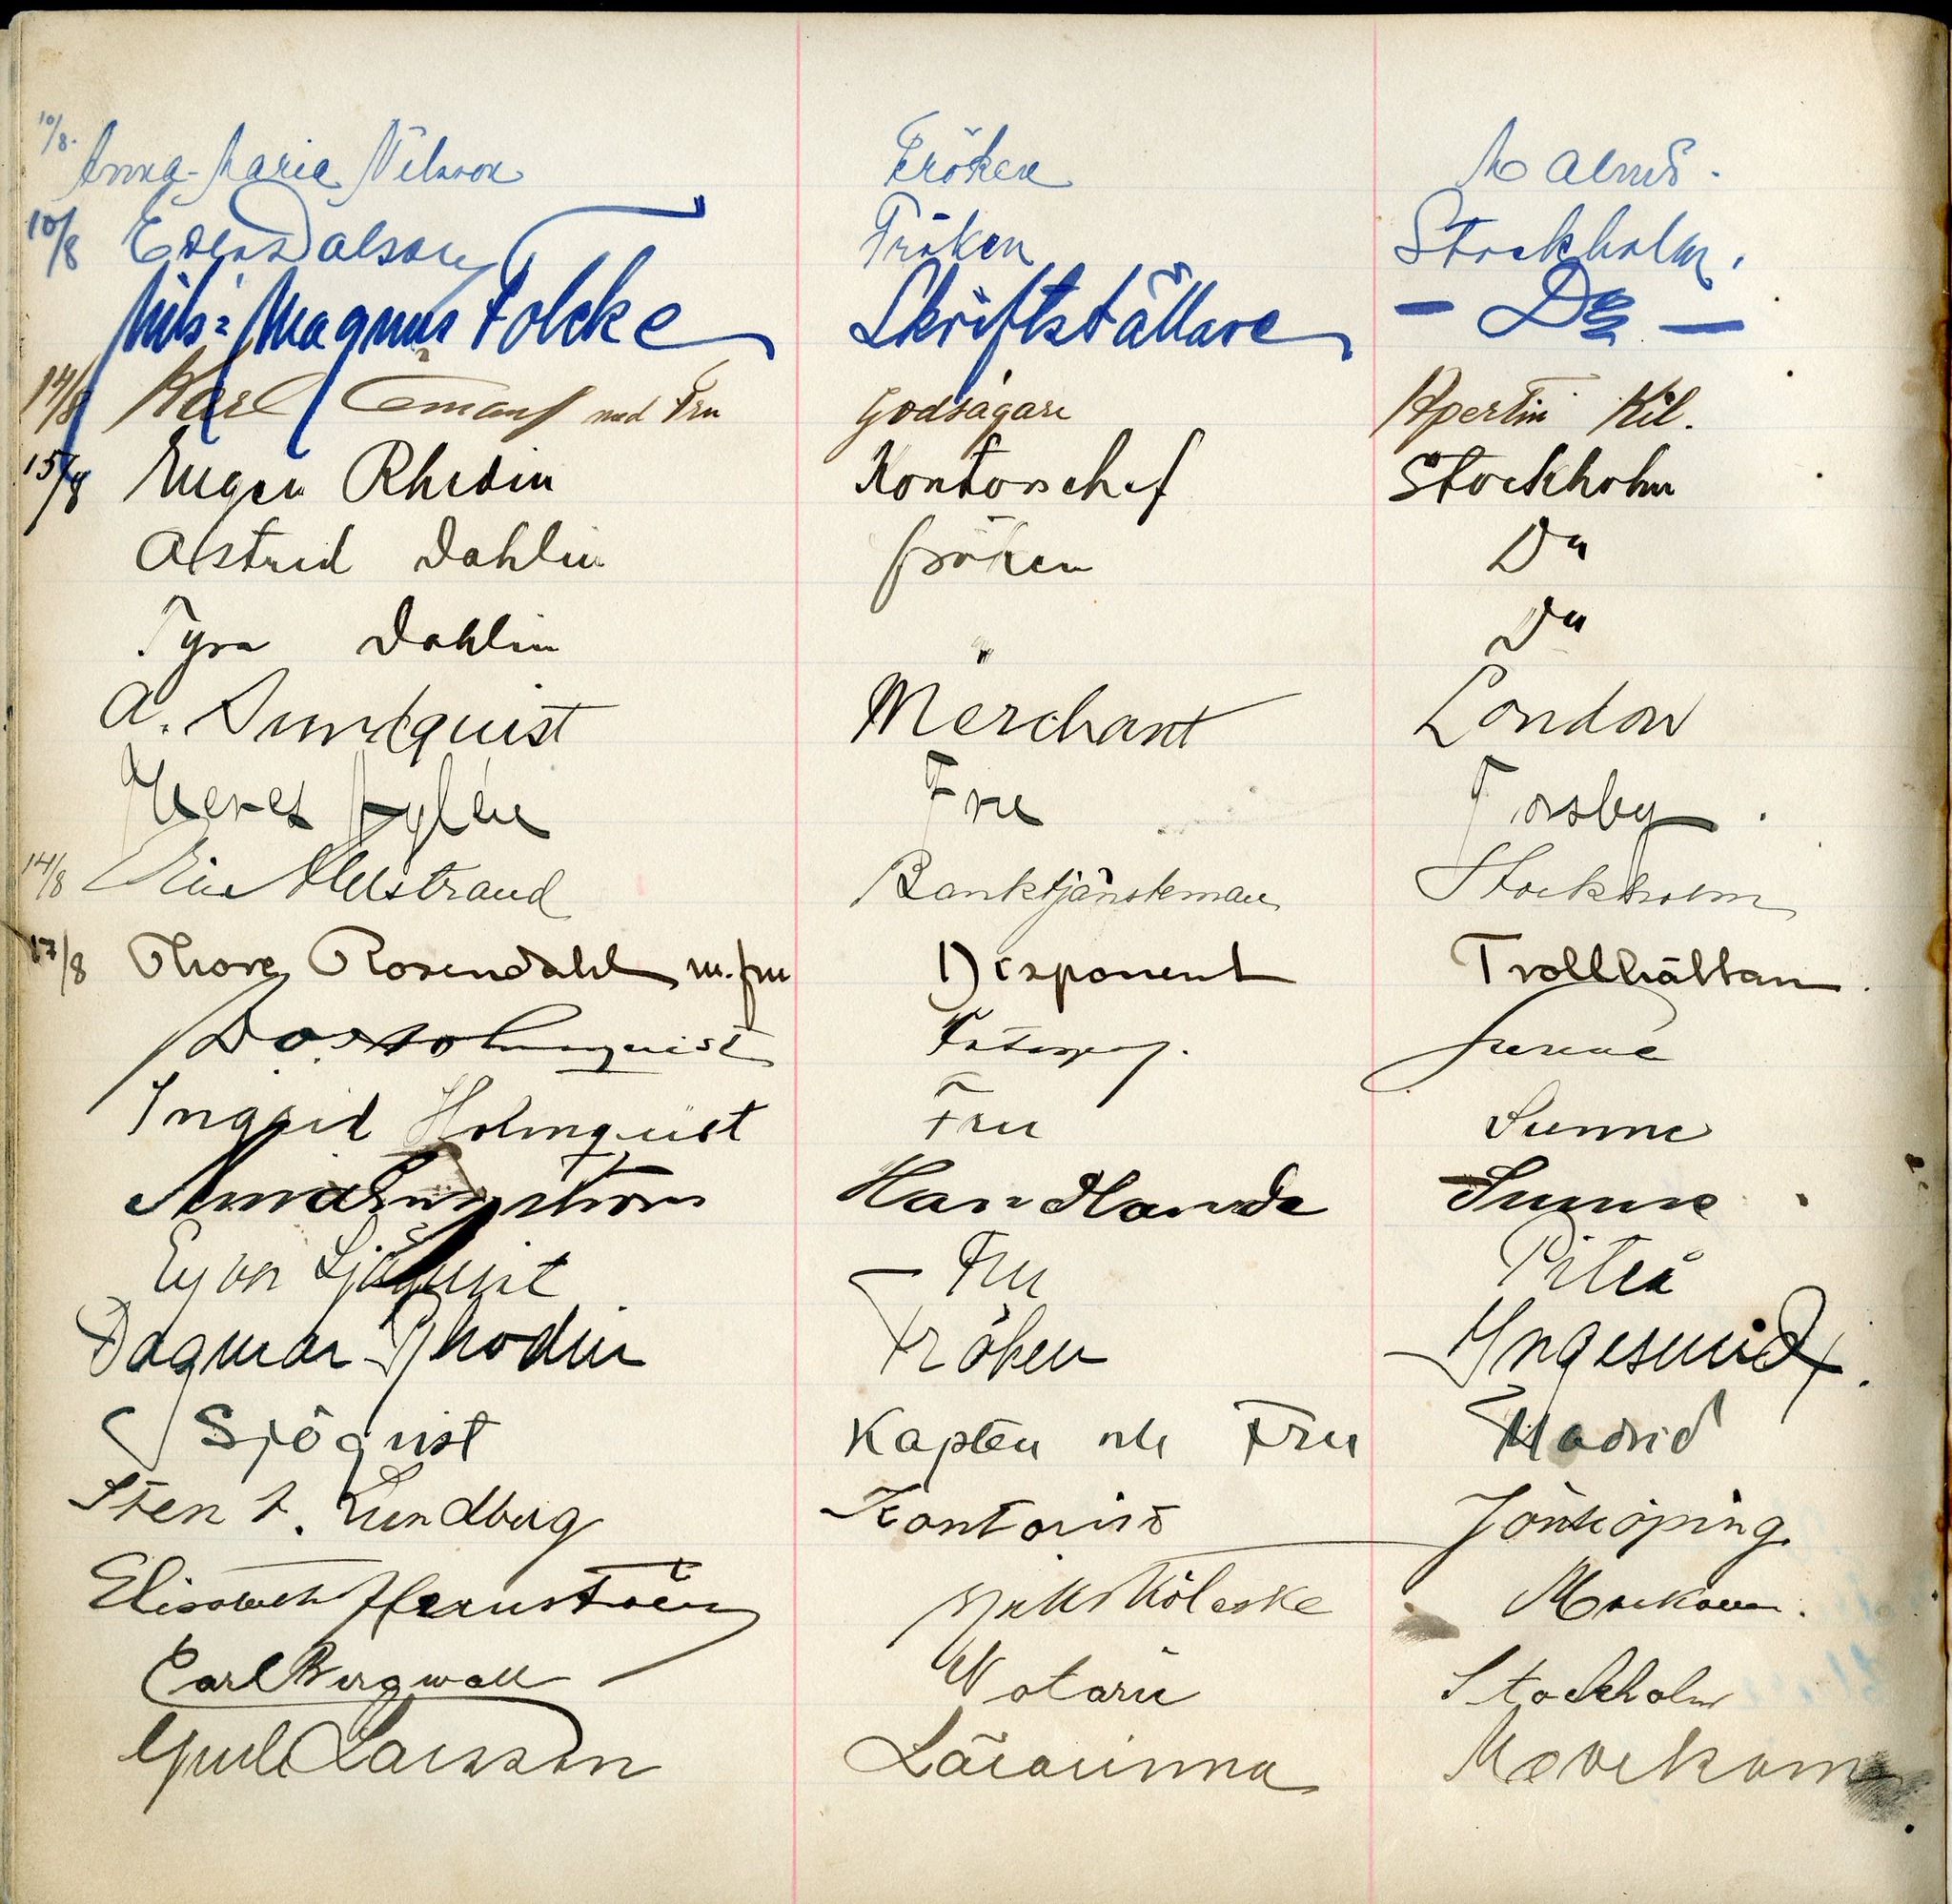 10/8. Anna-Maria Nilsson Fröken Malmö.
10/8 Fröken Stockholm.
Nils-Magnus Folcke Skriftställare - Do -
14/8 Karl med Fru Godsägare Apertin Kil.
15/8 Eugen Rhedin Kontorschef Stockholm
Astrid Dahlin fröken Do
Tyra Dahlin " Do
A. Sundquist Merchant London
Fru Torsby.
14/8 Banktjänsteman Stockholm
17/8 Thore Rosendahl m. fru Disponent Trollhättan.
Holmquist Fotogr. Sunne
Ingrid Holmquist Fru Sunne
Handlande Sunne.
Sjöqvist Fru Piteå
Dagmar Rhodin Fröken Yngesund.
Sjöqvist Kapten och Fru Madrid
Sten Lundberg Kontorist Jönköping.
Elisabeth Morkarn.
Carl Bergwall Notarie Stockholm
Larsson Lärarinna